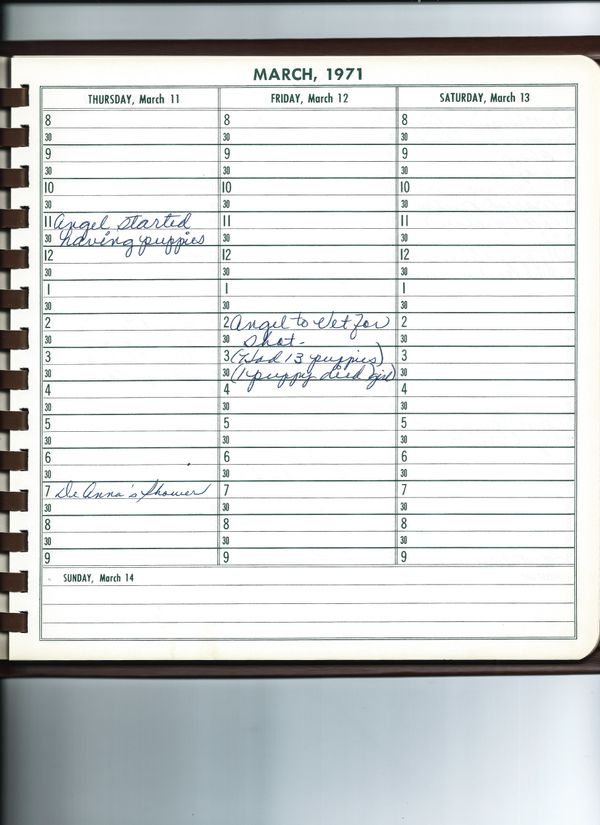 MARCH, 1971
THURSDAY, March 11
8
30
9
30
10
30
11 Angel started
30 having puppies
12
30
1
30
2
30
3
30
4
30
5
30
6
30
7 De Anna's Shower
30
8
30
9
FRIDAY, March 12
8
30
9
30
10
30
11
30
12
30
1
30
2 Angel to Vet for
30 shot.
3 (Had 13 puppies)
30 (1 puppy died girl)
4
30
5
30
6
30
7
30
8
30
9
SATURDAY, March 13
8
30
9
30
10
30
11
30
12
30
1
30
2
30
3
30
4
30
5
30
6
30
7
30
8
30
9
SUNDAY, March 14